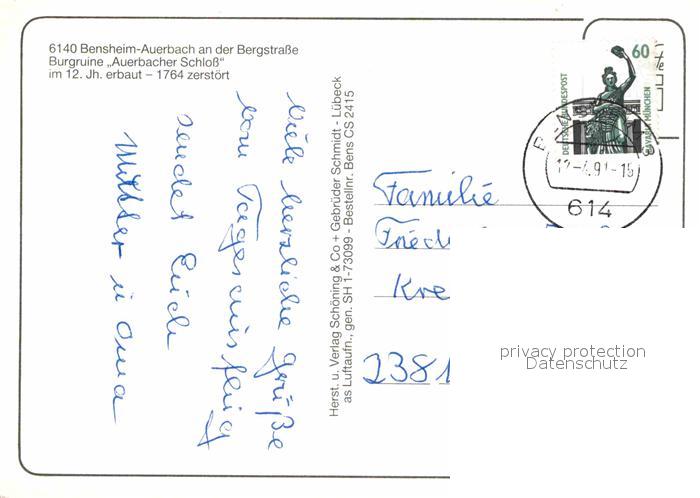 6140 Bensheim-Auerbach an der Bergstraße
Burgruine „Auerbacher Schloß“
im 12. Jh. erbaut – 1764 zerstört
Viele herzliche Grüße
vom Tagesausflug
sendet Euch
Mutter u Oma
Herst. u. Verlag Schöning & Co + Gebrüder Schmidt - Lübeck
as Luftaufn., gen. SH 1-73099 - Bestellnr. Bens CS 2415
60
DEUTSCHE BUNDESPOST
BAVARIA MÜNCHEN
614
Familie
Fried
Kre
2381
privacy protection
Datenschutz